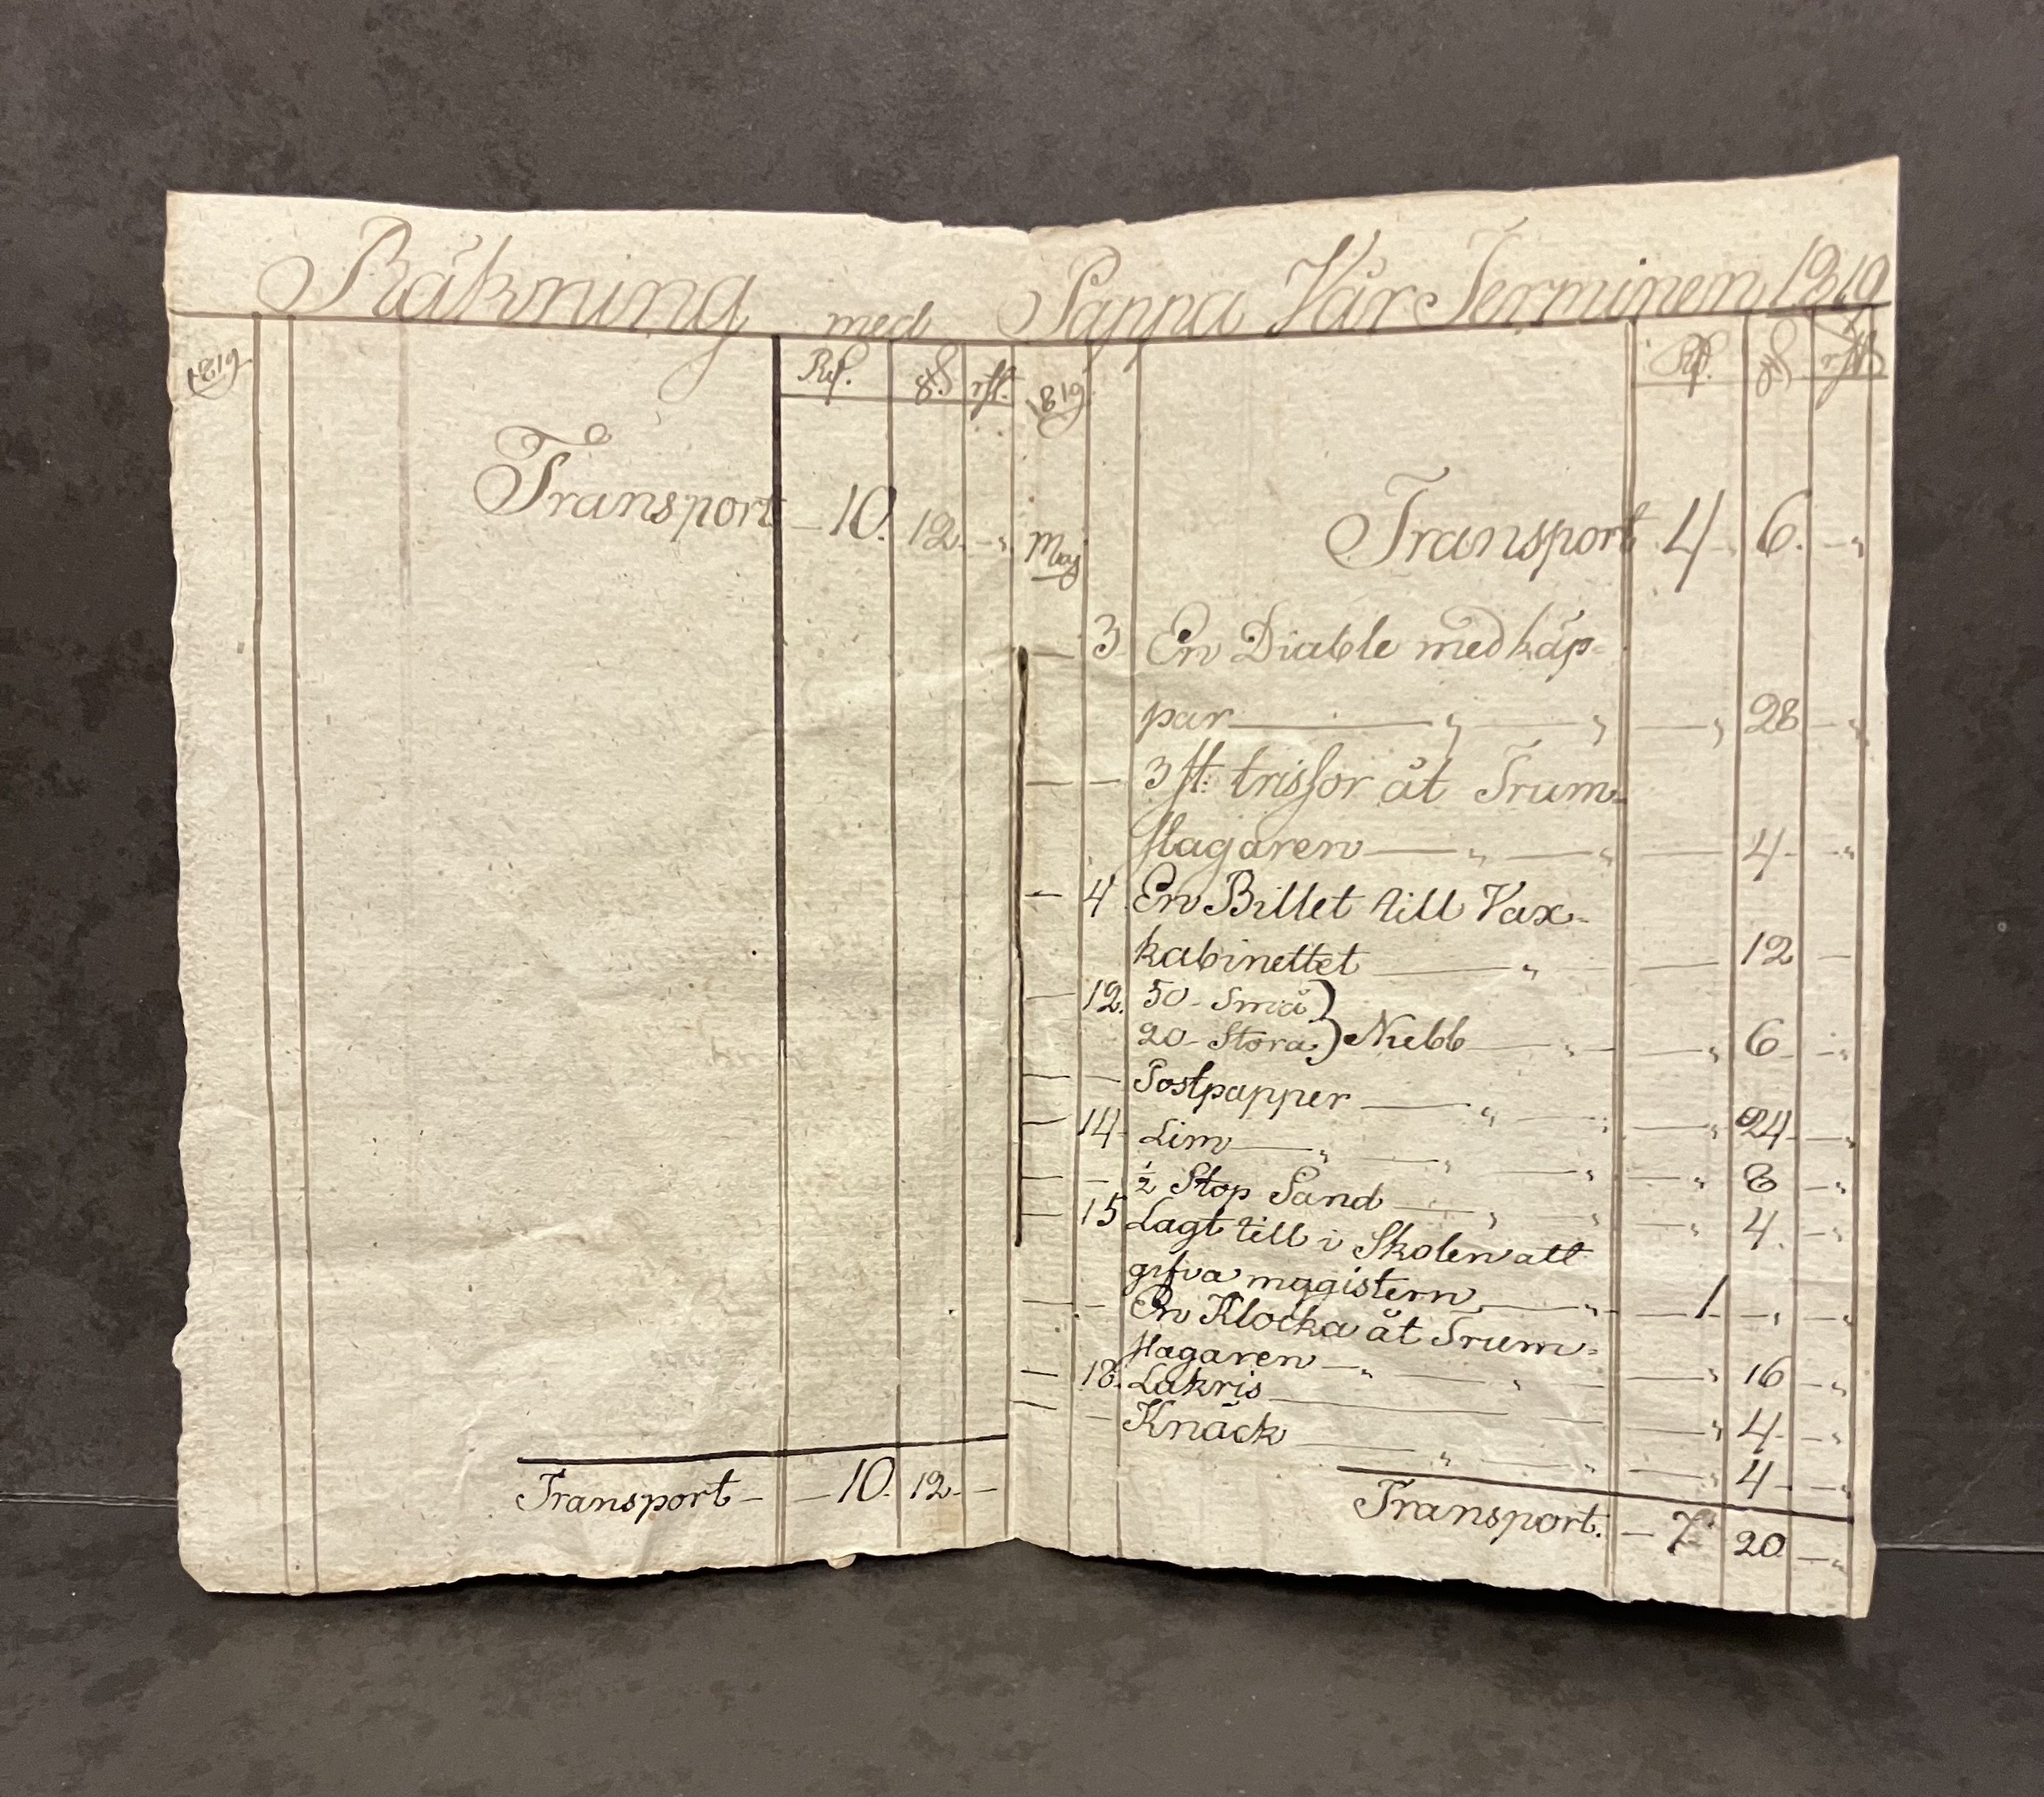 Räkning med Pappa Vår Terminen 1819
1819.
Transport — 10. 12. — „
Transport — — 10. 12. —
1819.
Maj
Transport. 4 — 6. — „
— 3 En Diable med käp-
par — „ — „ — „ 28 — „
— — 3 st: trissor åt Trum-
slagaren — „ — „ — 4 — „
— 4. En Billet till Vax-
kabinettet — „ — — 12 —
— 12. 50 - Små
20 - Stora } Nubb — „ — — „ 6 — „
— — Postpapper — „ — „ — „ 24 — „
— 14 - Lim — „ — „ — „ — „ 8 — „
— — ½ Stop Sand — „ — „ — „ 4. — „
— 15 Lagt till i Skolen att
gifva magistern — „ — 1 — „ — „
— — En Klocka åt Trum-
slagaren — „ — „ — — „ 16 — „
— 18. Lakris — — — „ 4 — „
— — Knäck — „ — „ — „ 4 — „
Transport. — 7. 20 — „